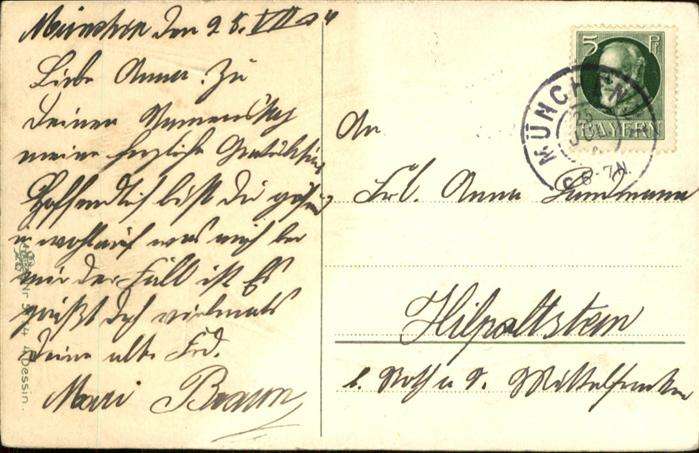 München den 25. VII 14
Liebe Anna. Zu
Deinen Namenstag
meine herzliche Gratulation
Hoffentlich bist Du gesund
u wohlauf was auch bei
mir der Fall ist Es
grüßt Dich vielmals
Deine alte Frd.
Mari Braun
An
Frl. Anna
Hilpoltstein
b. Roth a S. Mittelfranken
5 Pf
BAYERN
MÜNCHEN
6-7N.
Dessin.